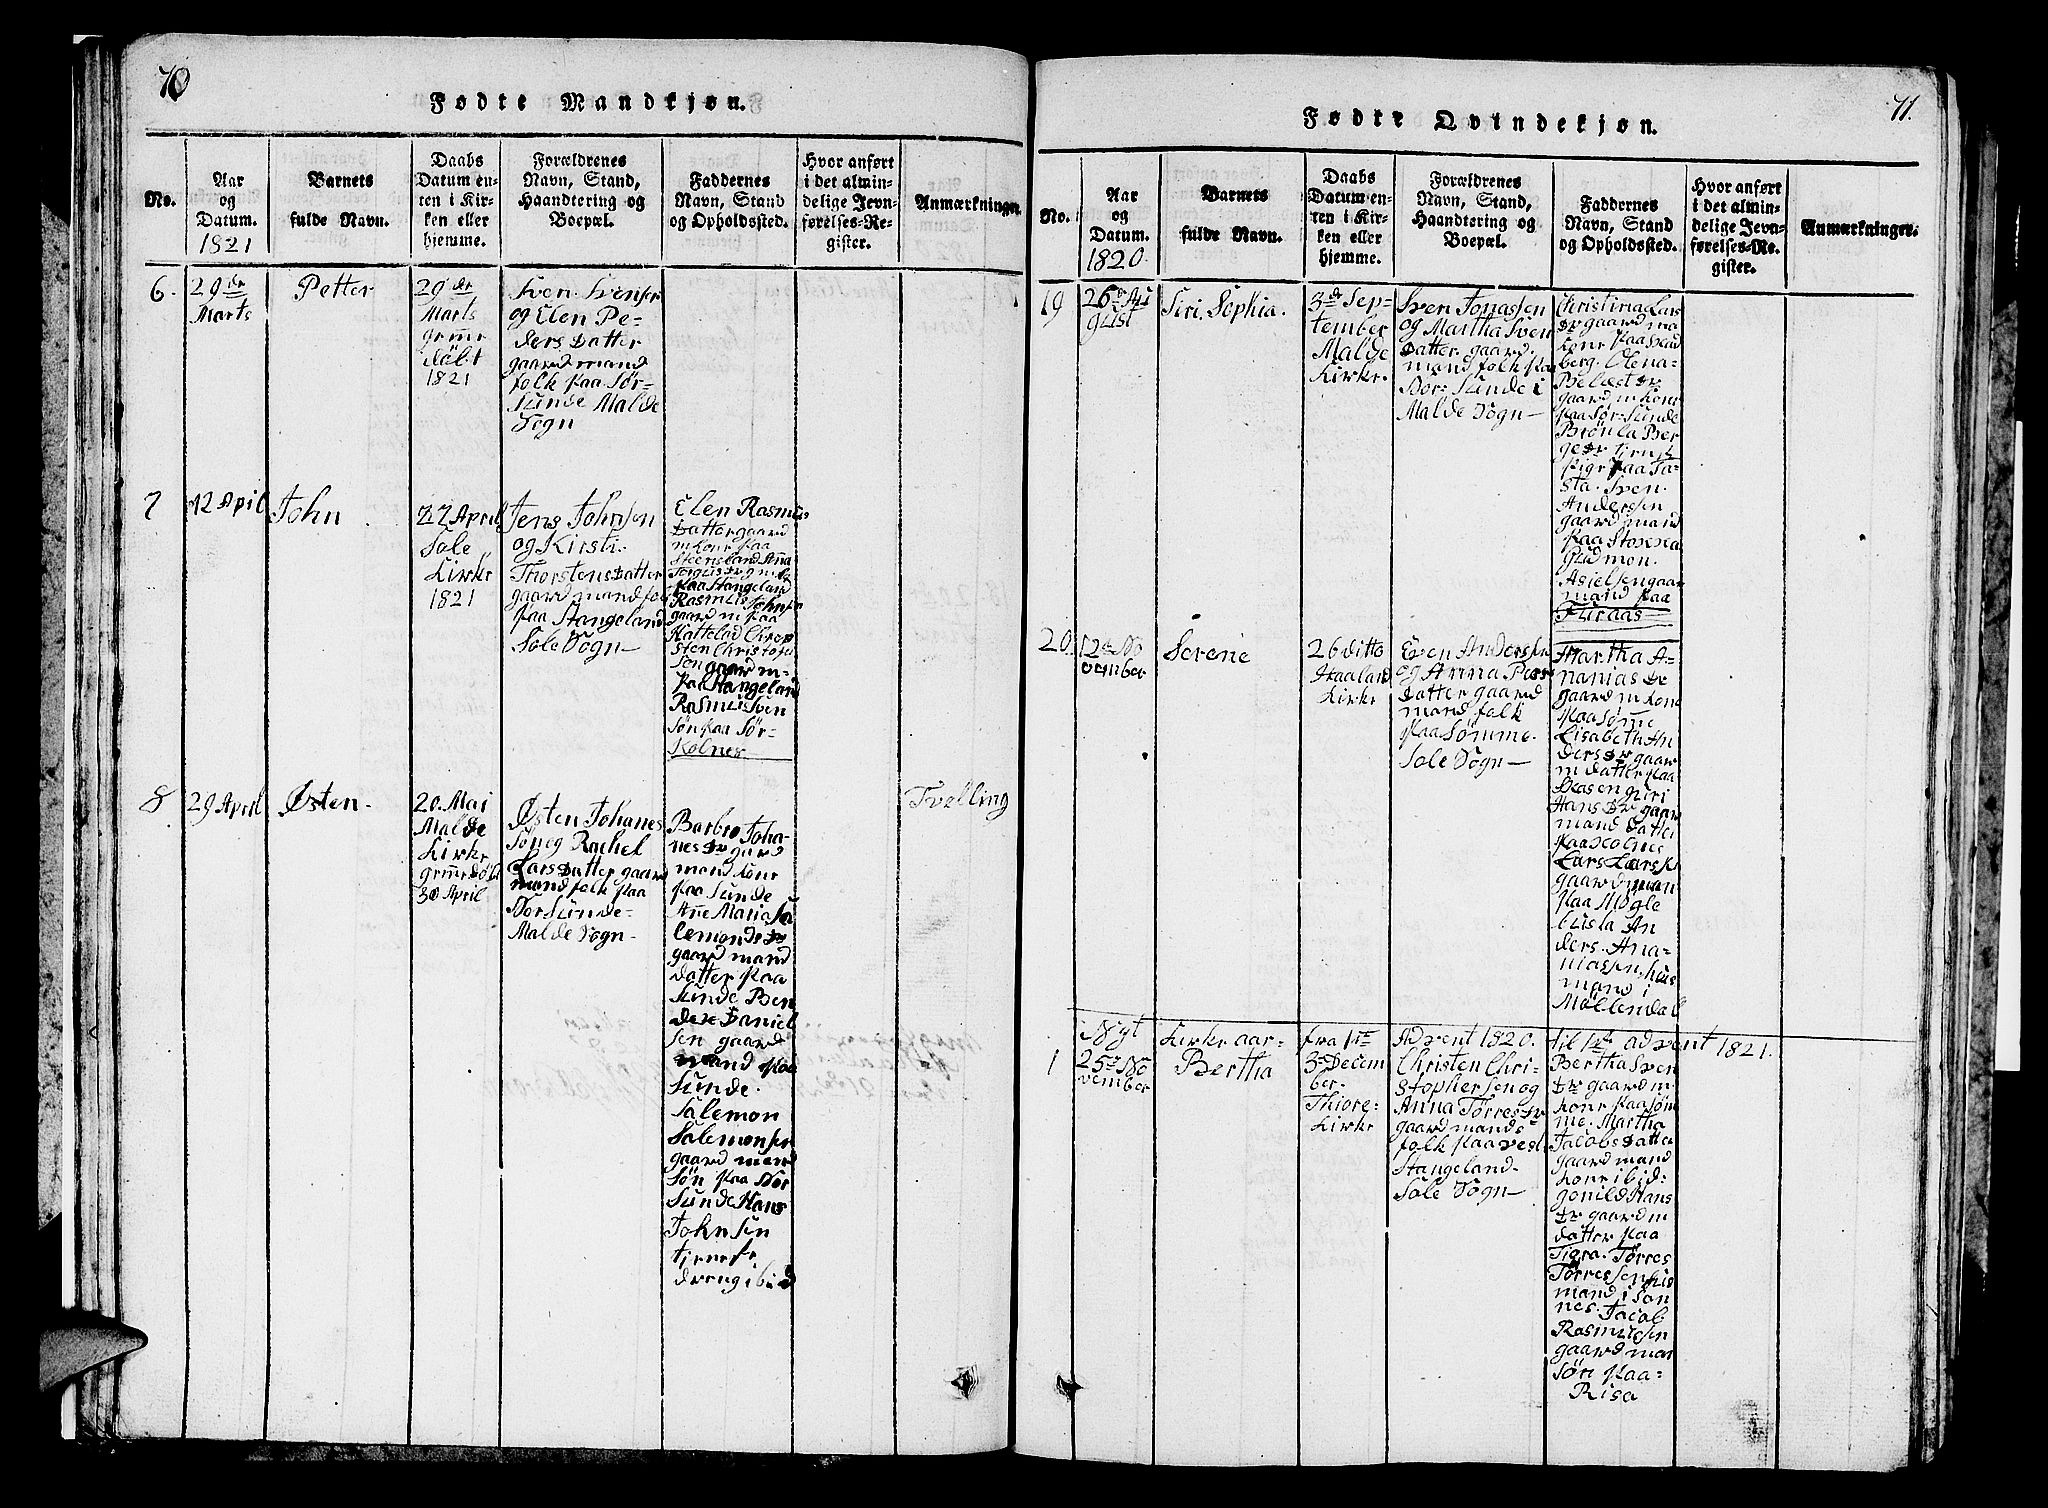 70
Fødte Mandkjøn.
No.
Aar
og
Datum.
1821
Barnets
fulde Navn.
Daabs
Datum en-
ten i Kir-
ken eller
hjemme.
Forældrenes
Navn, Stand,
Haandtering og
Boepæl.
Faddernes
Navn, Stand
og Opholdssted.
Hvor anført
i det almin-
delige Jevn-
førelses-Re-
gister.
Anmærkninger.
6.
29de
Marts
Petter
29de
Marts
døbt
1821
Sven Svensen
og Elen Pe-
ders Datter
gaard mand
folk paa Sør-
Sunde Malde
Sogn
7
12 April
John
22 April
Sole
Kirke
1821
Jens Johnsen
og Kirsti
Thorstens Datter
gaard mand folk
paa Stangeland
Sole Sogn
Elen Rasmus
Datter gaard
m kone paa
Steensland Anna
paa Stangeland
Rasmus Johnsen
gaard m paa
sten Christofer
Søn gaard m-
paa Stangeland
Rasmus Sven
Søn paa Sør-
Kolnes
8
29 April
Østen
20. Mai
Malde
Kirke
30 April
Østen Johanes
Søn og Rachel
Lars Datter gaard
mand folk paa
Nor Sunde
Malde Sogn
Barbro Joha-
nes Dr gaard
mand kone
paa Sunde
Ane Maria Sa
lemonds Dr
gaard mand
datter paa
Sunde
Daniel
sen gaard
mand paa
Sunde.
Salemon
Salemonsen
gaard mand
Søn paa Nor
Sunde Hans
John Sen
tjeneste
dreng ibid
Tvelling
71.
Fødte Qvindekjøn.
No.
Aar
og
Datum.
1820
Barnets
fulde Navn.
Daabs
Datum en-
ten i Kir-
ken eller
hjemme.
Forældrenes
Navn, Stand,
Haandtering og
Boepæl.
Faddernes
Navn, Stand
og Opholdssted.
Hvor anført
i det almin-
delige Jevn-
førelses-Re-
gister.
Anmærkninger.
19
26de Au
gust
Siri Sophia.
3de Sep-
tember
Malde
Kirke.
Sven Jonassen
og Martha Sven
Datter. gaard
mand folk paa
Nor: Sunde i
Malde Sogn
Christina Lars
Dr gaard ma
kone paa
berg. Olena
gaard m kone
paa Sør: Sunde
Ber
ge Dr tjenst
pige paa Ta-
sta. Sven.
Anderssen
gaard mand
paa Stokka
Gudmon.
Asielsen gaar
mand paa
Furaas
20.
12de No
vember
Serene
26 ditto
Haaland
Kirke
Even Anderssen
og Anna Peers
Datter gaard
mand folk
paa Sømme.
Sole Sogn
Martha A-
nanias Dr
gaard m kone
paa Sømme
Lisabeth An
ders Dr gaar
m datter paa
Hans Dr gaar
mand Datter
paa Kolnes
Lars Lars
gaard man
paa Mogle
An
ders. Ana-
niassen, huus
mand i
Møllendal
Nyt Kirke aar- fra 1ste Advent 1820. til 1ste advent 1821.
1
25de No
vember
Bertha
3de Decem
ber.
Thiore-
Kirke
Christen Chri-
stophersen og
Anna Tørres Dr
gaard mands
folk paa vest
Stangeland
Sole Sogn
Bertha Sven
Dr gaard m
kone paa Søm
me. Martha
Jacobs Datter
gaard mand
kone ibid:
Gonild Hans
Dr gaard m
datter paa
Tjora. Tørres
Tørressen hus
mand i Søn
nes. Jacob
Rasmussen
gaard man
Søn paa-
Risa